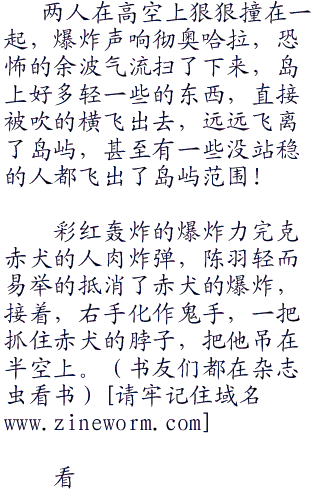 两人在高空上狠狠撞在一
起，爆炸声响彻奥哈拉，恐
怖的余波气流扫了下来，岛
上好多轻一些的东西，直接
被吹的横飞出去，远远飞离
了岛屿，甚至有一些没站稳
的人都飞出了岛屿范围！
彩红轰炸的爆炸力完克
赤犬的人肉炸弹，陈羽轻而
易举的抵消了赤犬的爆炸，
接着，右手化作鬼手，一把
抓住赤犬的脖子，把他吊在
半空上。（书友们都在杂志
虫看书）[请牢记住域名
www.zineworm.com]
看